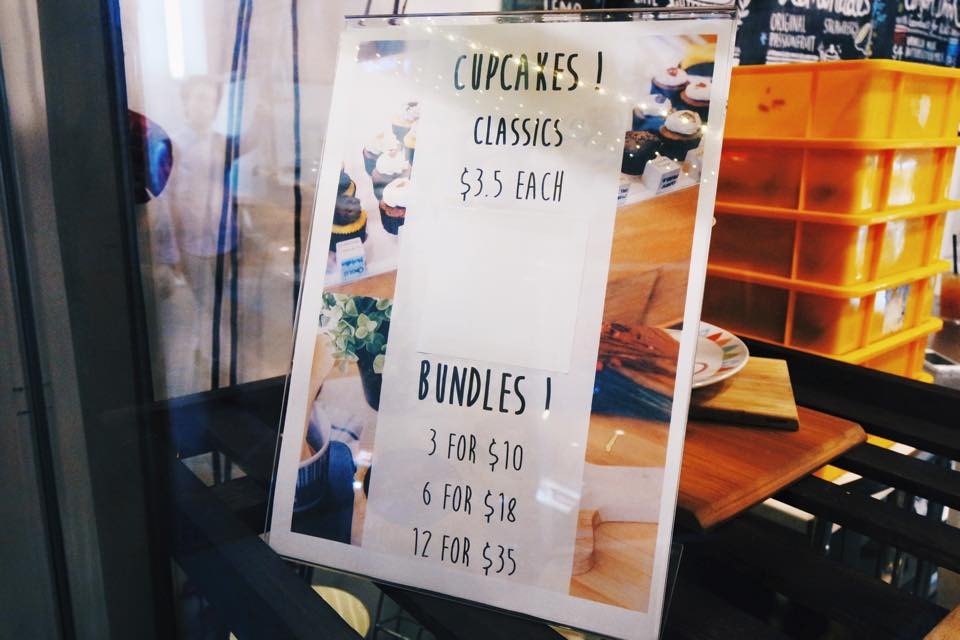 CUPCAKES !
CLASSICS
$3.5 EACH
BUNDLES !
3 FOR $10
6 FOR $18
12 FOR $35
ORIGINAL
PASSIONFRUIT